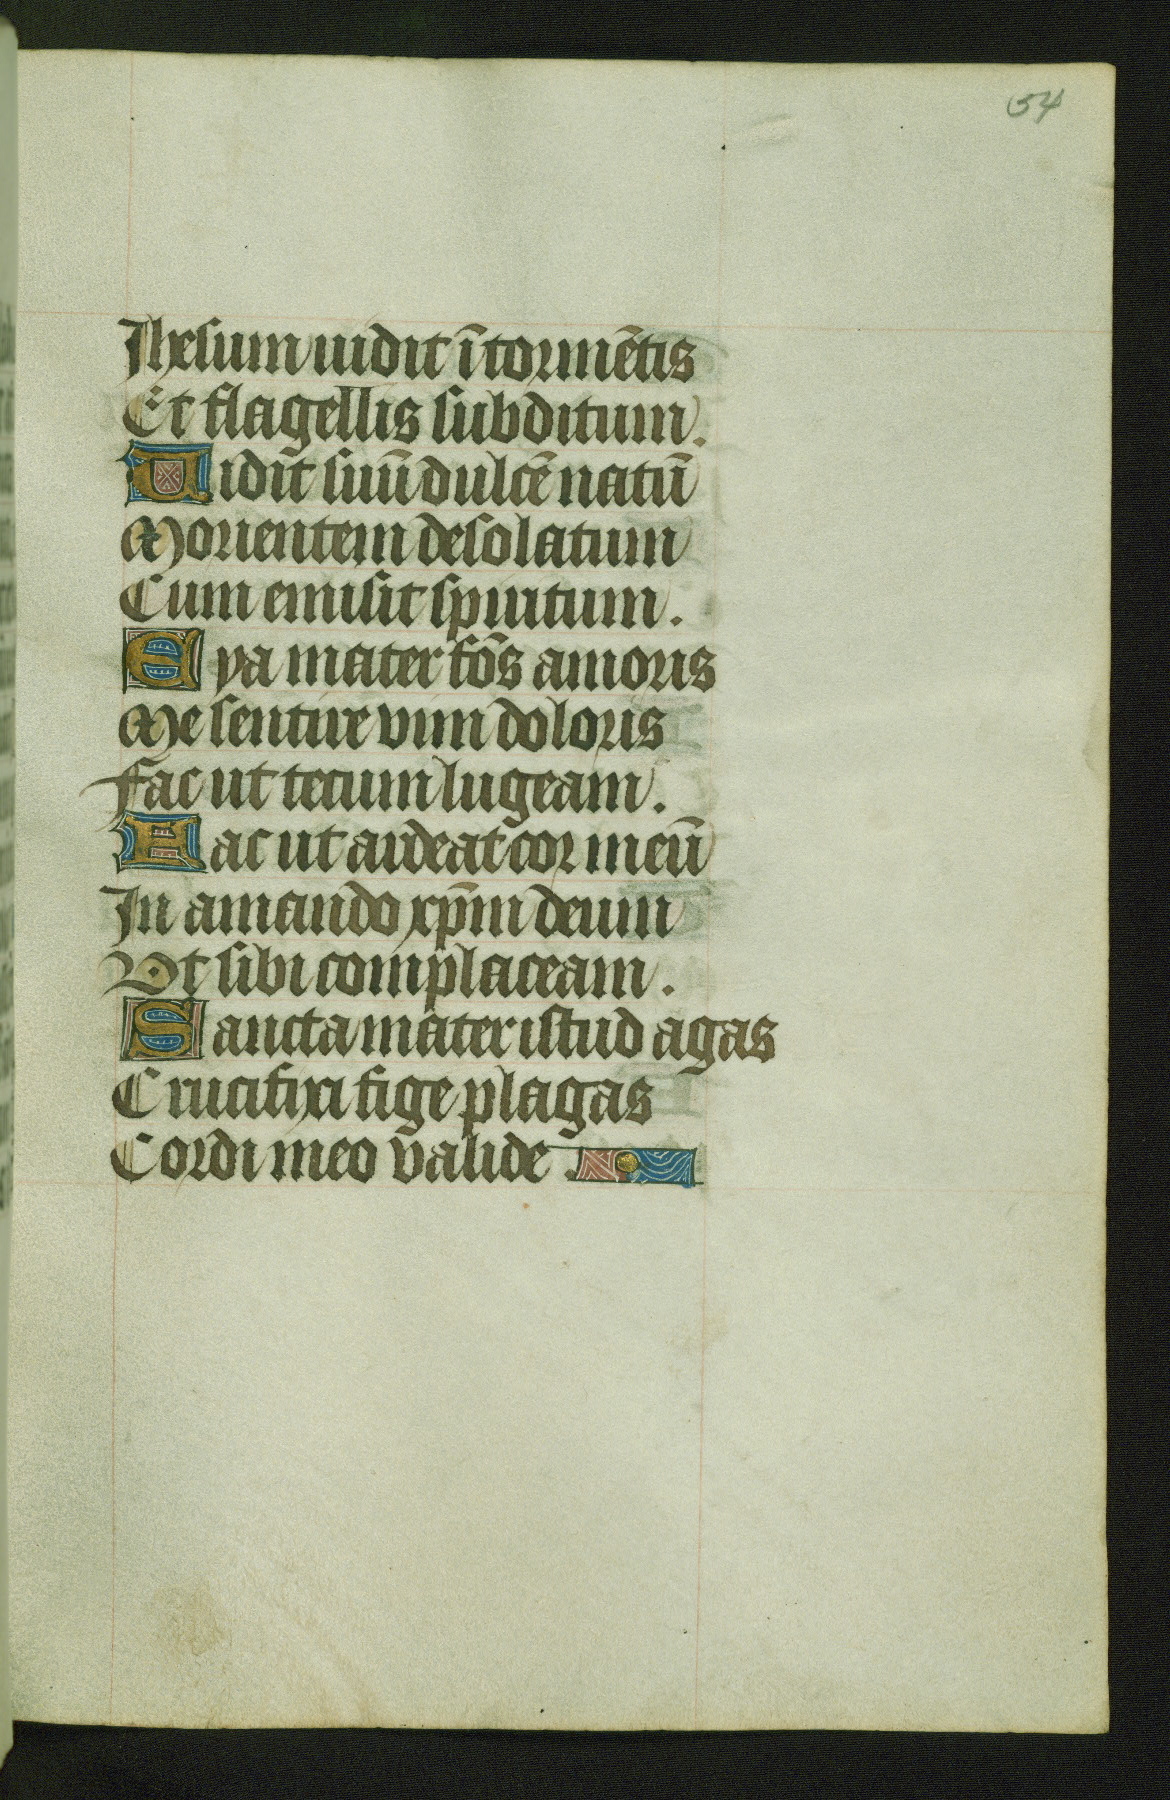 54
Jhesum uidit ī tormētis
Et flagellis subditum.
Uidit suū dulcē natū
Morientem desolatum
Cum emisit spiritum.
Eya mater fōs amoris
Me sentire vim doloris
Fac ut tecum lugeam.
Fac ut ardeat cor meū
In amando xp̄m deum
Vt sibi complaceam.
Sancta mater istud agas
Crucifixi fige plagas
Cordi meo valide.